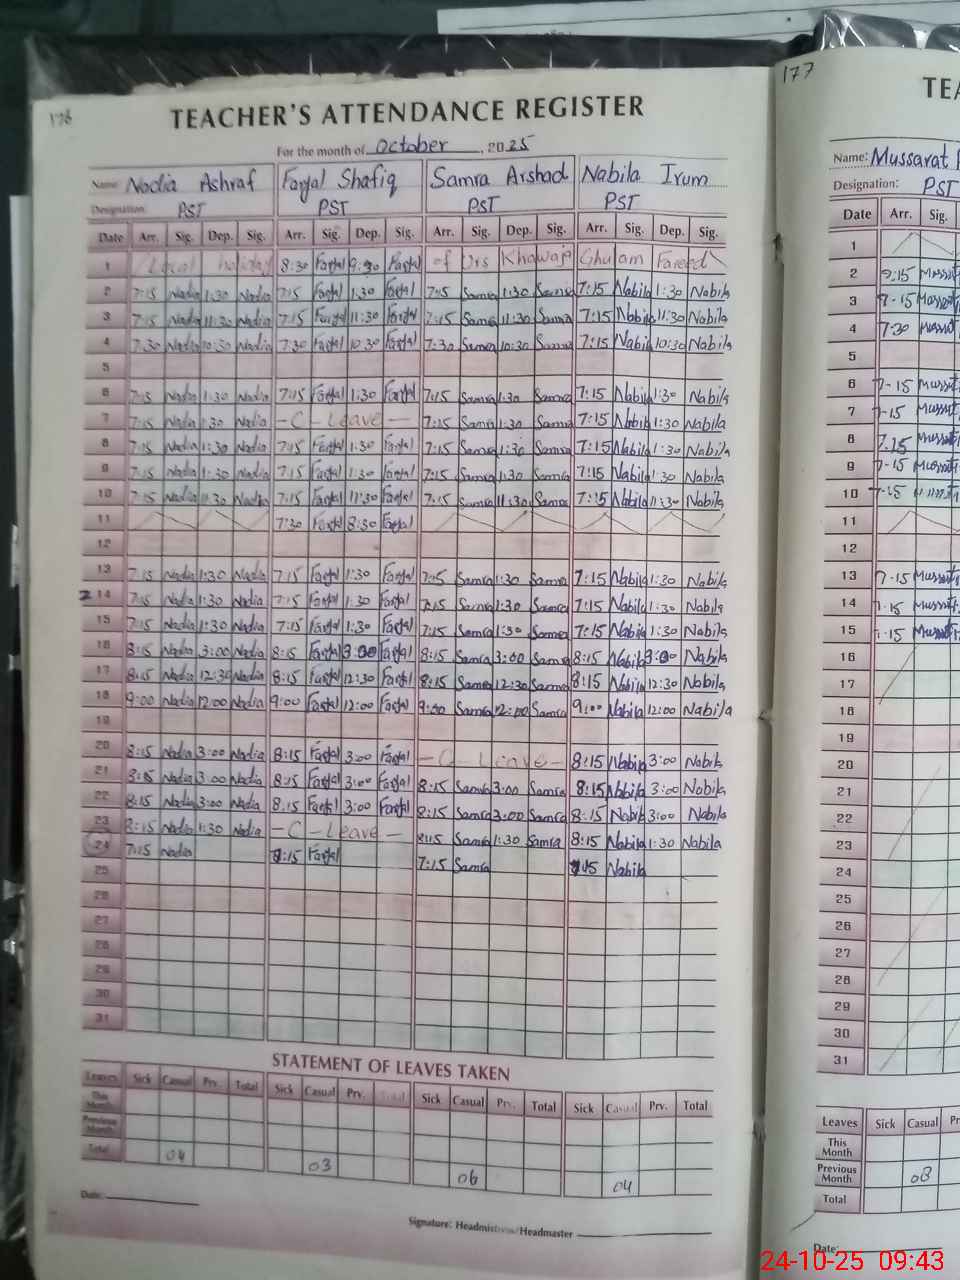 176
TEACHER'S ATTENDANCE REGISTER
For the month of October, 2025
Name: Nadia Ashraf Faryal Shafiq Samra Arshad Nabila Irum
Designation: PST PST PST PST
Date Arr. Sig. Dep. Sig. Arr. Sig. Dep. Sig. Arr. Sig. Dep. Sig. Arr. Sig. Dep. Sig.
1 Local holiday 8:30 Faryal 9:30 Faryal of Urs Khawaja Ghulam Fareed
2 7:15 Nadia 1:30 Nadia 7:15 Faryal 1:30 Faryal 7:15 Samra 1:30 Samra 7:15 Nabila 1:30 Nabila
3 7:15 Nadia 11:30 Nadia 7:15 Faryal 11:30 Faryal 7:15 Samra 11:30 Samra 7:15 Nabila 11:30 Nabila
4 7:30 Nadia 10:30 Nadia 7:30 Faryal 10:30 Faryal 7:30 Samra 10:30 Samra 7:15 Nabila 10:30 Nabila
5
6 7:15 Nadia 1:30 Nadia 7:15 Faryal 1:30 Faryal 7:15 Samra 1:30 Samra 7:15 Nabila 1:30 Nabila
7 7:15 Nadia 1:30 Nadia - C - Leave - 7:15 Samra 1:30 Samra 7:15 Nabila 1:30 Nabila
8 7:15 Nadia 1:30 Nadia 7:15 Faryal 1:30 Faryal 7:15 Samra 1:30 Samra 7:15 Nabila 1:30 Nabila
9 7:15 Nadia 1:30 Nadia 7:15 Faryal 1:30 Faryal 7:15 Samra 1:30 Samra 7:15 Nabila 1:30 Nabila
10 7:15 Nadia 11:30 Nadia 7:15 Faryal 11:30 Faryal 7:15 Samra 11:30 Samra 7:15 Nabila 11:30 Nabila
11 7:30 Faryal 8:30 Faryal
12
13 7:15 Nadia 1:30 Nadia 7:15 Faryal 1:30 Faryal 7:15 Samra 1:30 Samra 7:15 Nabila 1:30 Nabila
14 7:15 Nadia 1:30 Nadia 7:15 Faryal 1:30 Faryal 7:15 Samra 1:30 Samra 7:15 Nabila 1:30 Nabila
15 7:15 Nadia 1:30 Nadia 7:15 Faryal 1:30 Faryal 7:15 Samra 1:30 Samra 7:15 Nabila 1:30 Nabila
16 8:15 Nadia 3:00 Nadia 8:15 Faryal 3:00 Faryal 8:15 Samra 3:00 Samra 8:15 Nabila 3:00 Nabila
17 8:15 Nadia 12:30 Nadia 8:15 Faryal 12:30 Faryal 8:15 Samra 12:30 Samra 8:15 Nabila 12:30 Nabila
18 9:00 Nadia 12:00 Nadia 9:00 Faryal 12:00 Faryal 9:00 Samra 12:00 Samra 9:00 Nabila 12:00 Nabila
19
20 8:15 Nadia 3:00 Nadia 8:15 Faryal 3:00 Faryal - C - Leave - 8:15 Nabila 3:00 Nabila
21 8:15 Nadia 3:00 Nadia 8:15 Faryal 3:00 Faryal 8:15 Samra 3:00 Samra 8:15 Nabila 3:00 Nabila
22 8:15 Nadia 3:00 Nadia 8:15 Faryal 3:00 Faryal 8:15 Samra 3:00 Samra 8:15 Nabila 3:00 Nabila
23 8:15 Nadia 1:30 Nadia - C - Leave - 8:15 Samra 1:30 Samra 8:15 Nabila 1:30 Nabila
24 7:15 Nadia :15 Faryal 7:15 Samra 7:15 Nabila
25
26
27
28
29
30
31
STATEMENT OF LEAVES TAKEN
Leaves Sick Casual Prv. Total Sick Casual Prv. Total Sick Casual Prv. Total Sick Casual Prv. Total
This Month
Previous Month
Total 04 03 06 04
Date:
Signature: Headmistress/Headmaster
177
TEA
Name: Mussarat
Designation: PST
Date Arr. Sig.
1
2 7:15 Mussrt
3 7-15 Mussrt
4 7:30 Mussrt
5
6 7-15 Mussrt
7 7-15 Mussrt
8 7.15 Mussrt
9 7-15 Mussrt
10 7-15 Mussrt
11
12
13 7-15 Mussrt
14 7-15 Mussrt
15 7-15 Mussrt
16
17
18
19
20
21
22
23
24
25
26
27
28
29
30
31
Leaves Sick Casual Pr
This Month
Previous Month 08
Total
Date:
24-10-25 09:43